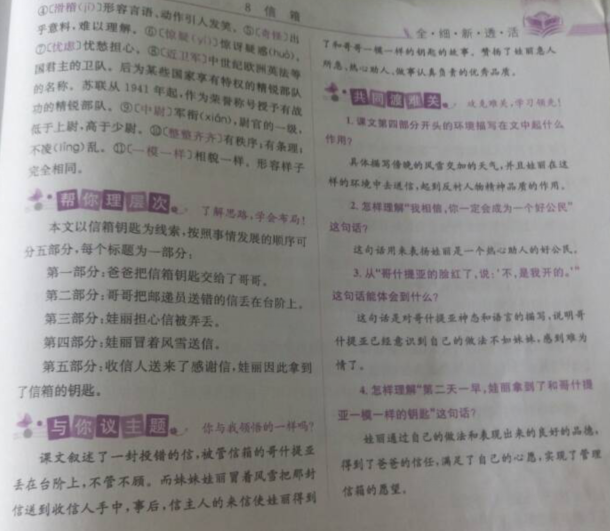 8 信 箱
④〔滑稽(jī)〕形容言语、动作引人发笑。⑤〔奇怪〕出
乎意料,难以理解。⑥〔惊疑(yí)〕惊讶疑惑(huò)。
⑦〔忧虑〕忧愁担心。⑧〔近卫军〕中世纪欧洲英法等
国君主的卫队。后为某些国家享有特权的精锐部队
的名称。苏联从 1941 年起,作为荣誉称号授予有战
功的精锐部队。⑨〔中尉〕军衔(xián),尉官的一级,
低于上尉,高于少尉。⑩〔整整齐齐〕有秩序;有条理;
不凌(líng)乱。⑪〔一模一样〕相貌一样。形容样子
完全相同。
帮你理层次
了解思路,学会布局!
本文以信箱钥匙为线索,按照事情发展的顺序可
分五部分,每个标题为一部分:
第一部分:爸爸把信箱钥匙交给了哥哥。
第二部分:哥哥把邮递员送错的信丢在台阶上。
第三部分:娃丽担心信被弄丢。
第四部分:娃丽冒着风雪送信。
第五部分:收信人送来了感谢信,娃丽因此拿到
了信箱的钥匙。
与你议主题
你与我领悟的一样吗?
课文叙述了一封投错的信,被管信箱的哥什提亚
丢在台阶上,不管不顾。而妹妹娃丽冒着风雪把那封
信送到收信人手中,事后,信主人的来信使娃丽得到
全·细·新·透·活
了和哥哥一模一样的钥匙的故事。赞扬了娃丽急人
所急,热心助人,做事认真负责的优秀品质。
共同渡难关
攻克难关,学习领先!
1.课文第四部分开头的环境描写在文中起什么
作用?
具体描写傍晚的风雪交加的天气,并且娃丽在这
样的环境中去送信,起到反衬人物精神品质的作用。
2.怎样理解“我相信,你一定会成为一个好公民”
这句话?
这句话用来表扬娃丽是一个热心助人的好公民。
3.从“哥什提亚的脸红了,说:‘不,是我开的。’”
这句话能体会到什么?
这句话是对哥什提亚神态和语言的描写,说明哥
什提亚已经意识到自己的做法不如妹妹,感到难为
情了。
4.怎样理解“第二天一早,娃丽拿到了和哥什提
亚一模一样的钥匙”这句话?
娃丽通过自己的做法和表现出来的良好的品德,
得到了爸爸的信任,满足了自己的心愿,实现了管理
信箱的愿望。